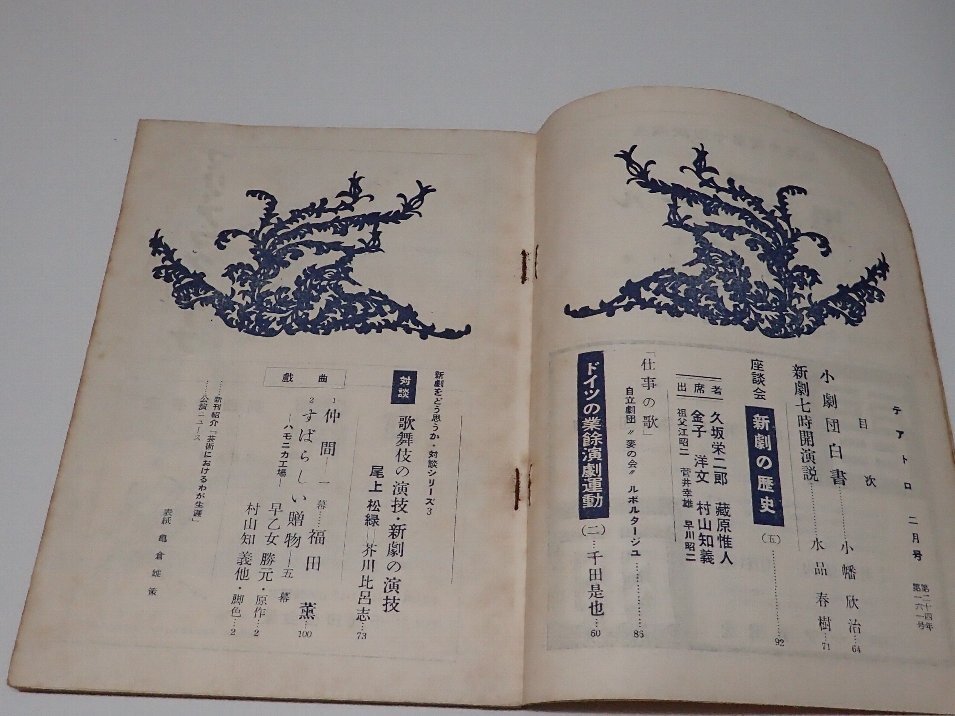 テアトロ 二月号 第二十四年 第一六一号
目次
小劇団白書………小幡欣治…64
新劇七時開演説………水品春樹…71
座談会 新劇の歴史 (五)………92
出席者
久坂栄二郎 蔵原惟人
金子洋文 村山知義
祖父江昭二 菅井幸雄 早川昭二
「仕事の歌」
自立劇団〝麦の会〟ルポルタージュ………86
ドイツの業餘演劇運動 (二)…千田是也…60
新劇をどう思うか・対談シリーズ3
対談 歌舞伎の演技・新劇の演技
尾上松緑―芥川比呂志…73
戯曲
1 仲間―一幕……福田薫…100
2 すばらしい贈物―五幕
―ハモニカ工場―
早乙女勝元・原作…2
村山知義他・脚色…2
……新刊紹介「芸術におけるわが生涯」
……公演ニュース
表紙 亀倉雄策